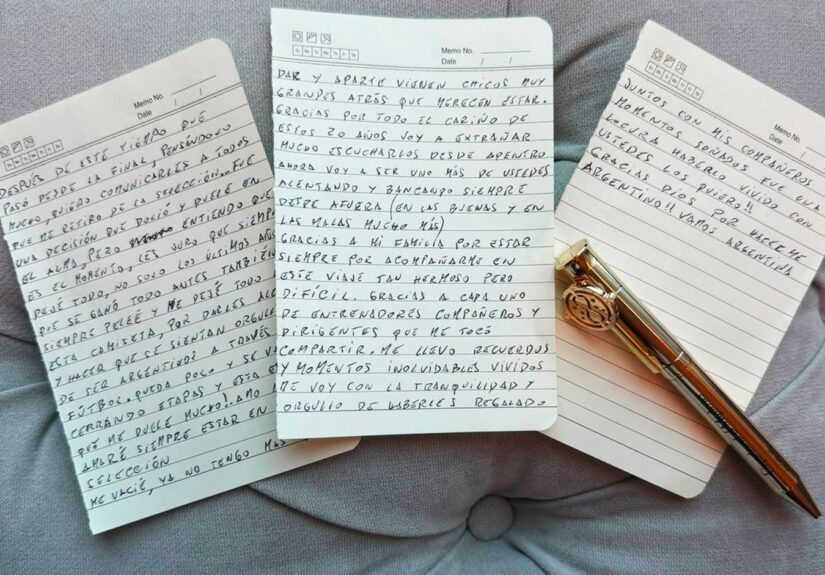 Memo No.
Date / /
DESPUÉS DE ESTE TIEMPO QUE
PASÓ DESDE LA FINAL, PENSÁNDOLO
MUCHO, QUIERO COMUNICARLES A TODOS
QUE ME RETIRO DE LA SELECCIÓN.. FUE
UNA DECISIÓN QUE DOLIÓ Y DUELE EN
EL ALMA, PERO ENTIENDO QUE
ES EL MOMENTO, LES JURO QUE SIEMPRE
DEJÉ TODO, NO SOLO LOS ÚLTIMOS AÑOS
QUE SE GANÓ TODO ANTES TAMBIÉN
SIEMPRE PELEÉ Y ME DEJÉ TODO
ESTA CAMISETA, POR DARLES ALE
Y HACER QUE SE SIENTAN ORGULL
DE SER ARGENTINOS A TRAVÉS
FÚTBOL. QUEDA POCO Y SE VA
CERRANDO ETAPAS Y ESTA E
QUE ME DUELE MUCHO!. AMO
AMARÉ SIEMPRE ESTAR EN
SELECCIÓN
ME VACIÉ, YA NO TENGO MÁS
Memo No.
Date / /
Su Mo Tu We Th Fr Sa
DAR Y APARTE VIENEN CHICOS MUY
GRANDES ATRÁS QUE MERECEN ESTAR.
GRACIAS POR TODO EL CARIÑO DE
ESTOS 20 AÑOS VOY A EXTRAÑAR
MUCHO ESCUCHARLOS DESDE ADENTRO
AHORA VOY A SER UNO MÁS DE USTEDES
ALENTANDO Y BANCANDO SIEMPRE
DESDE AFUERA (EN LAS BUENAS Y EN
LAS MALAS MUCHO MÁS)
GRACIAS A MI FAMILIA POR ESTAR
SIEMPRE POR ACOMPAÑARME EN
ESTE VIAJE TAN HERMOSO PERO
DIFÍCIL. GRACIAS A CADA UNO
DE ENTRENADORES COMPAÑEROS Y
DIRIGENTES QUE ME TOCÓ
COMPARTIR. ME LLEVO RECUERDOS
Y MOMENTOS INOLVIDABLES VIVIDOS
ME VOY CON LA TRANQUILIDAD Y
ORGULLO DE HABERLES REGALADO
Memo No.
Date / /
JUNTOS CON MIS COMPAÑEROS
MOMENTOS SOÑADOS FUE UNA
LOCURA HABERLO VIVIDO CON
USTEDES LOS QUIERO!!
GRACIAS DIOS POR HACERME
ARGENTINO!! VAMOS ARGENTINA